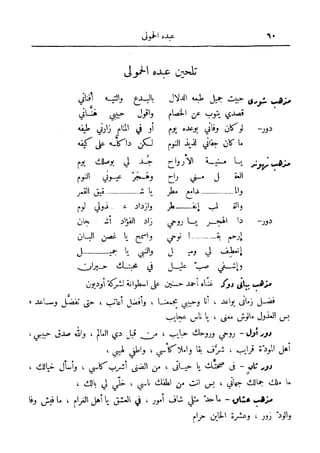 ٦٠ عبده الحمولى
تلحين عبده الحمولى
مذهب شورى حيت جميل طبعه الدلال بالبدع والتيه أفنانى
قصدي يتوب عن الخصام واقول حبيبي هنّانى
دور - لو كان وفانى بوعده يوم أو في المنام زارني طيفه
ما كان جفاني لذيذ النوم لكن دا كله على كيفه
مذهب نهوند يا منية الأرواح جُد لي بوصلك يوم
العقل مني راح وهجر عيوني النوم
والدمع مطر يا شقيق القمر
والقلب انفطر وازداد لوم
دور - دا الهجر يا روحي زاد الفؤاد أشجان
إرحم بقا نوحي واسمح يا غصن البان
إنعطف لي وميل والنبي يا جميل
وإشفي صبّ عليل في محبتك حيران
مذهب بياتى دوكه غناه أحمد حسنين على اسطوانة لشركة أوديون
فضل زمانى يواعد ، أنا وحبيبي يجمعنا ، وأفضل أعاتب ، حتى تفضّل وساعد ،
بس العذول مالوش معنى ، يا ناس عجايب
دور أول - روحي وروحك حبايب ، من قبل دي العالم ، والله صدق حبيبي ،
أهل المودّة قرايب ، شرّف بقا واملا كاسي ، واطفي لهيبي ،
دور تان - في صحتك يا حياتى ، من الضنى أشرب كاسي ، وأسأل خيالك ،
ما ملك جمالك جهاتي ، بس انت من لطفك ناسي ، خلّي لي بالك ،
مذهب عشاق - ما حدّ مثلي شاف أمور ، في العشق يا أهل الغرام ، ما فيش وفا
والودّ زور ، وعشرة الخاين حرام